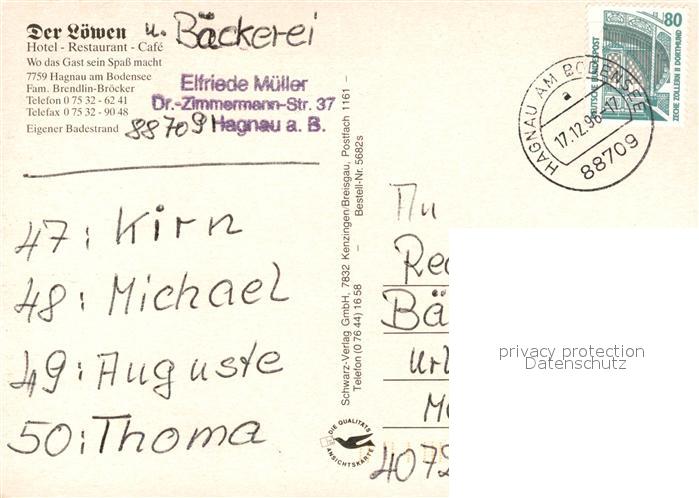 Der Löwen u. Bäckerei
Hotel - Restaurant - Café
Wo das Gast sein Spaß macht
7759 Hagnau am Bodensee
Fam. Brendlin-Bröcker
Telefon 0 75 32 - 62 41
Telefax 0 75 32 - 90 48
Eigener Badestrand
Elfriede Müller
Dr.-Zimmermann-Str. 37
88709 Hagnau a. B.
47: Kirn
48: Michael
49: Auguste
50: Thoma
Schwarz-Verlag GmbH, 7832 Kenzingen/Breisgau, Postfach 1161 –
Telefon (0 76 44) 16 58 – Bestell-Nr. 5682s
DIE QUALITÄTS
ANSICHTSKARTE
80
DEUTSCHE BUNDESPOST
ZECHE ZOLLERN II DORTMUND
HAGNAU AM BODENSEE
a
17.12.96-17
88709
An
Red
Bä
Url
4072
privacy protection
Datenschutz